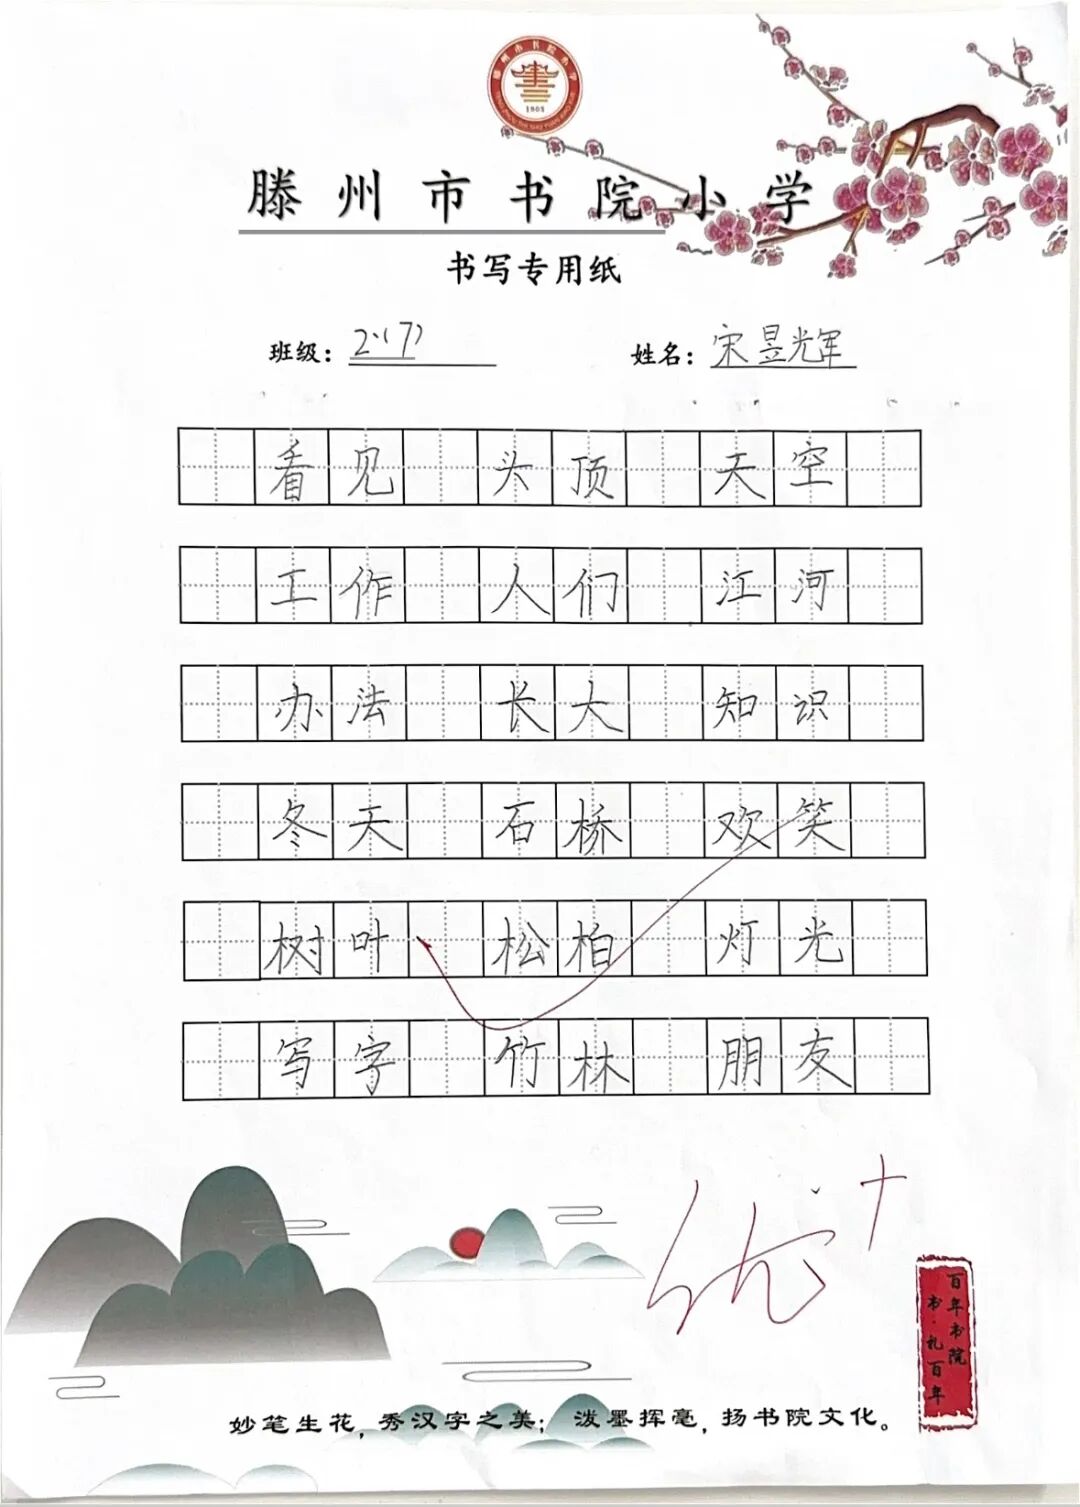 滕州市书院小学
1903
滕州市书院小学
书写专用纸
班级：2.(7) 姓名：宋昱光军
看见 头顶 天空
工作 人们 江河
办法 长大 知识
冬天 石桥 欢笑
树叶 松柏 灯光
写字 竹林 朋友
优+
百年书院
书·礼百年
妙笔生花，秀汉字之美；泼墨挥毫，扬书院文化。